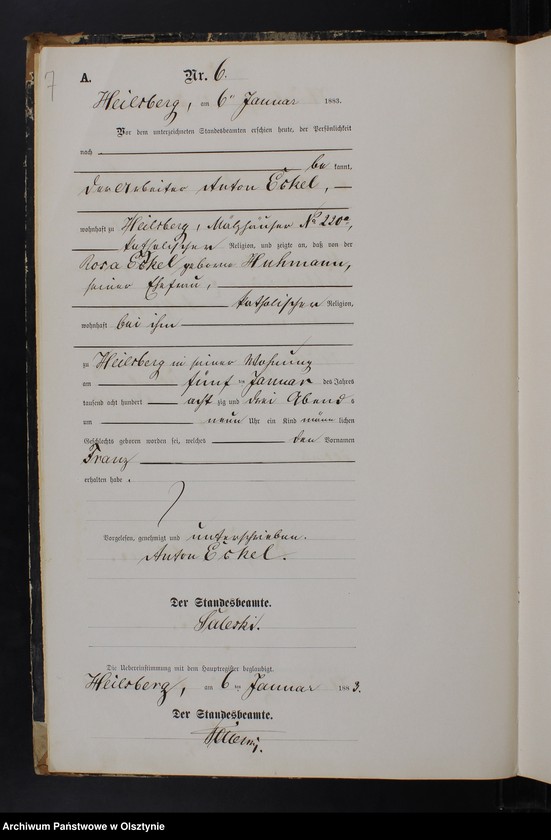 7
A.
Nr. 6.
Heilsberg, am 6ten Januar 1883.
Vor dem unterzeichneten Standesbeamten erschien heute, der Persönlichkeit
nach
be kannt,
der Arbeiter Anton Eckel,
wohnhaft zu Heilsberg, Mälzhäuser No 220a,
katholischer Religion, und zeigte an, daß von der
Rosa Eckel geborne Huhmann,
seiner Ehefrau,
katholischer Religion,
wohnhaft bei ihm
zu Heilsberg in seiner Wohnung
am fünf ten Januar des Jahres
tausend acht hundert acht zig und drei Abends
um neun Uhr ein Kind männ lichen
Geschlechts geboren worden sei, welches den Vornamen
Franz
erhalten habe.
Vorgelesen, genehmigt und unterschrieben.
Anton Eckel.
Der Standesbeamte.
Die Uebereinstimmung mit dem Hauptregister beglaubigt.
Heilsberg, am 6 ten Januar 1883.
Der Standesbeamte.
Archiwum Państwowe w Olsztynie